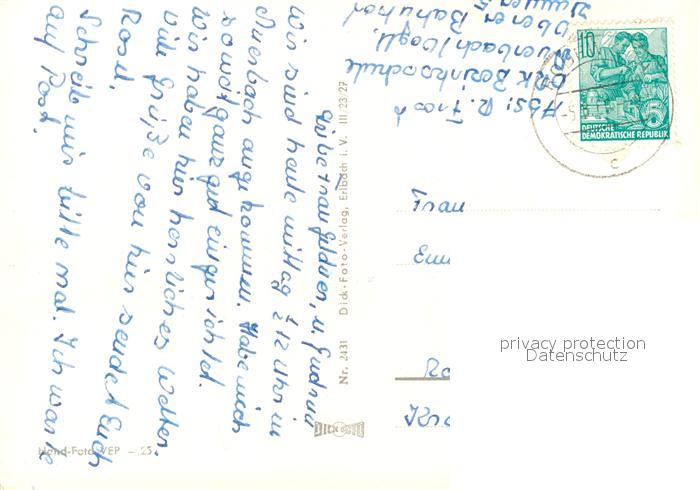 Liebe Frau Geldner, u. Gudrun
Wir sind heute mittag ½ 12 Uhr in
Auerbach angekommen. Habe mich
soweit ganz gut eingerichtet.
Wir haben hier herrliches Wetter.
Viele Grüße von hier sendet Euch
Rosel.
Schreib mir bitte mal. Ich warte
auf Post.
Abs: R.
DRK Bezirksschule
Auerbach/Vogtl.
Oberer Bahnhof
Zimmer 5
Nr. 2431 Dick-Foto-Verlag, Erlbach i. V. III/23/27
DICK FOTO
Hand-Foto VEP – .25
10
5
DEUTSCHE
DEMOKRATISCHE REPUBLIK
c
Frau
privacy protection
Datenschutz